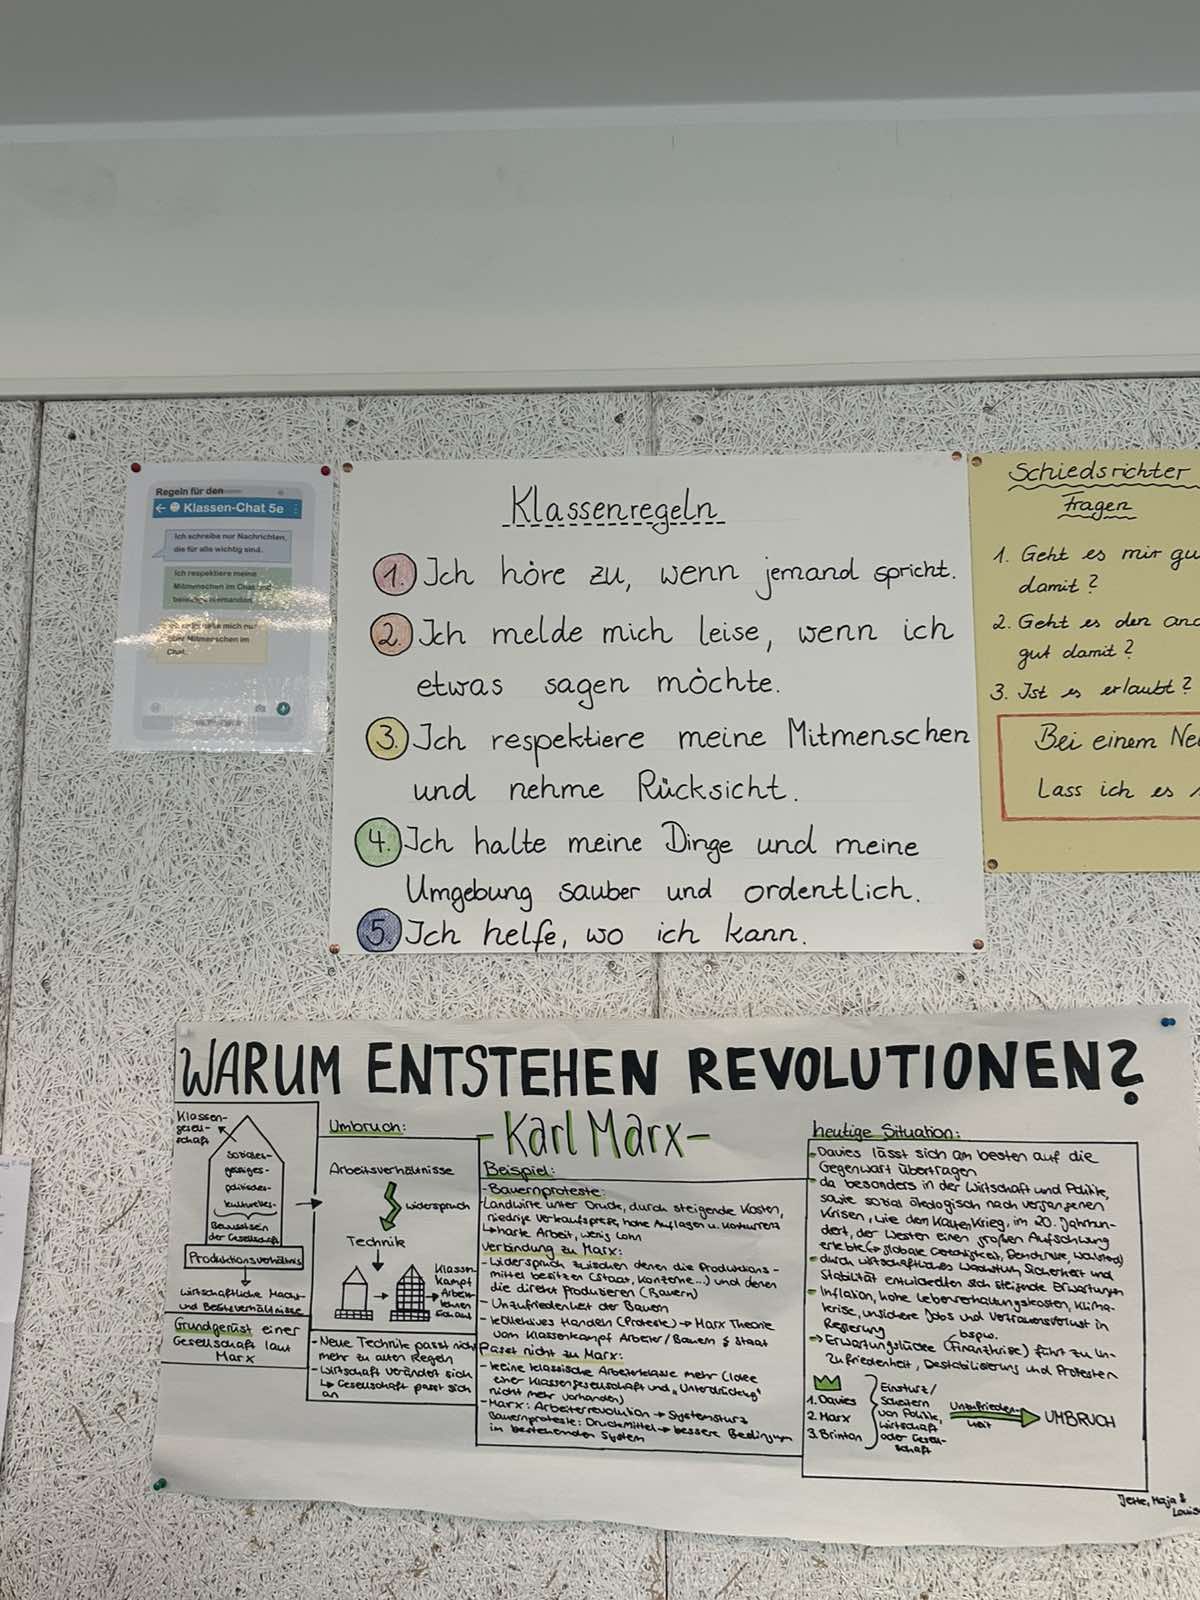 Regeln für den
Klassen-Chat 5e
Ich schreibe nur Nachrichten,
die für alle wichtig sind.
Ich respektiere meine
Mitmenschen im Chat
mich nur
über Mitmenschen im
Chat.
Klassenregeln
1. Ich höre zu, wenn jemand spricht.
2. Ich melde mich leise, wenn ich
etwas sagen möchte.
3. Ich respektiere meine Mitmenschen
und nehme Rücksicht.
4. Ich halte meine Dinge und meine
Umgebung sauber und ordentlich.
5. Ich helfe, wo ich kann.
Schiedsrichter
Fragen
1. Geht es mir gu
damit?
2. Geht es den and
gut damit?
3. Ist es erlaubt?
Bei einem Nei
Lass ich es
WARUM ENTSTEHEN REVOLUTIONEN?
- Karl Marx -
Klassen-
gesell-
schaft
soziales-
geistiges-
politisches-
kulturelles-
Bewusstsein
der Gesellschaft
Produktionsverhältnis
wirtschaftliche Macht-
und Besitzverhältnisse
Grundgerüst einer
Gesellschaft laut
Marx
Umbruch:
Arbeitsverhältnisse
widerspruch
Technik
Klassen-
Kampf
Arbeit-
- Neue Technik passt nicht
mehr zu alten Regeln
- Wirtschaft verändert sich
↳ Gesellschaft passt sich
an
Beispiel:
- Bauernproteste:
Landwirte unter Druck, durch steigende Kosten,
niedrige Verkaufspreise, hohe Auflagen u. Konkurrenz
↳ harte Arbeit, wenig Lohn
Verbindung zu Marx:
- Widerspruch zwischen denen die Produktions-
mittel besitzen (Staat, Konzerne...) und denen
die direkt produzieren (Bauern)
- Unzufriedenheit der Bauern
- kollektives Handeln (Proteste) → Marx Theorie
vom Klassenkampf Arbeiter/Bauern & Staat
Passt nicht zu Marx:
- keine klassische Arbeiterklasse mehr (Idee
einer Klassengesellschaft und „Unterdrückung"
nicht mehr vorhanden)
- Marx: Arbeiterrevolution → Systemsturz
Bauernproteste: Druckmittel → bessere Bedingungen
in bestehenden System
heutige Situation:
- Davies lässt sich am besten auf die
Gegenwart übertragen
- da besonders in der Wirtschaft und Politik,
sowie sozial ökologisch nach vergangenen
Krisen, wie den Kalten Krieg, im 20. Jahrhun-
dert, der Westen einen großen Aufschwung
erlebte (→ globale Wohlstand)
- durch wirtschaftliches Wachstum, Sicherheit und
Stabilität entwickelten sich steigende Erwartungen
- Inflation, hohe Lebenserhaltungskosten, Klima-
krise, unsichere Jobs und Vertrauensverlust in
Regierung bspw.
→ Erwartungslücke (Finanzkrise) führt zu Un-
zufriedenheit, Destabilisierung und Protesten
1. Davies
2. Marx
3. Brinton
Einsturz/
Scheitern
von Politik,
Wirtschaft
oder Gesell-
schaft
Unzufrieden-
heit
UMBRUCH
Jette, Maja &
Louis